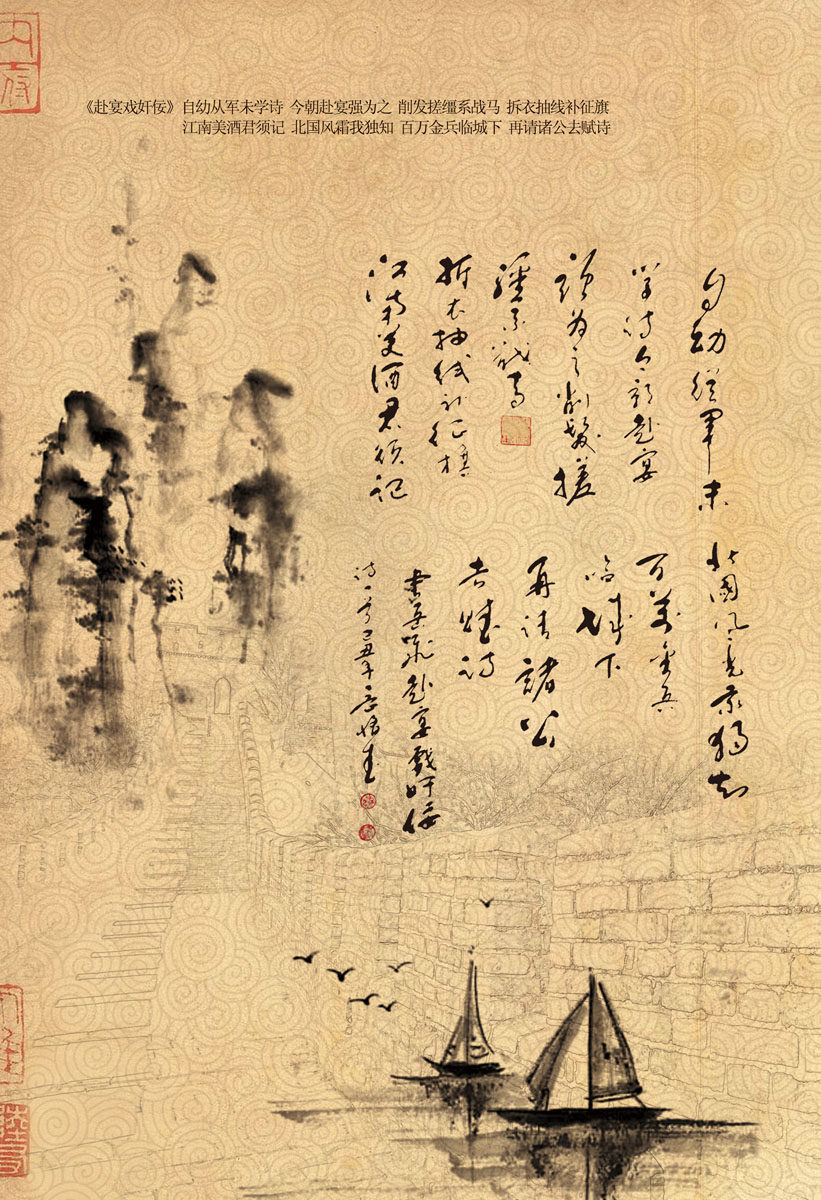 《赴宴戏奸佞》自幼从军未学诗 今朝赴宴强为之 削发搓缰系战马 拆衣抽线补征旗
江南美酒君须记 北国风霜我独知 百万金兵临城下 再请诸公去赋诗
自幼從軍未
学诗今朝赴宴
强为之削髮搓
缰系战马
拆衣抽线补征旗
江南美酒君须记
北國风光我独知
百萬金兵
临城下
再请諸公
去赋诗
書岳飛赴宴戲奸佞
诗一首己丑年